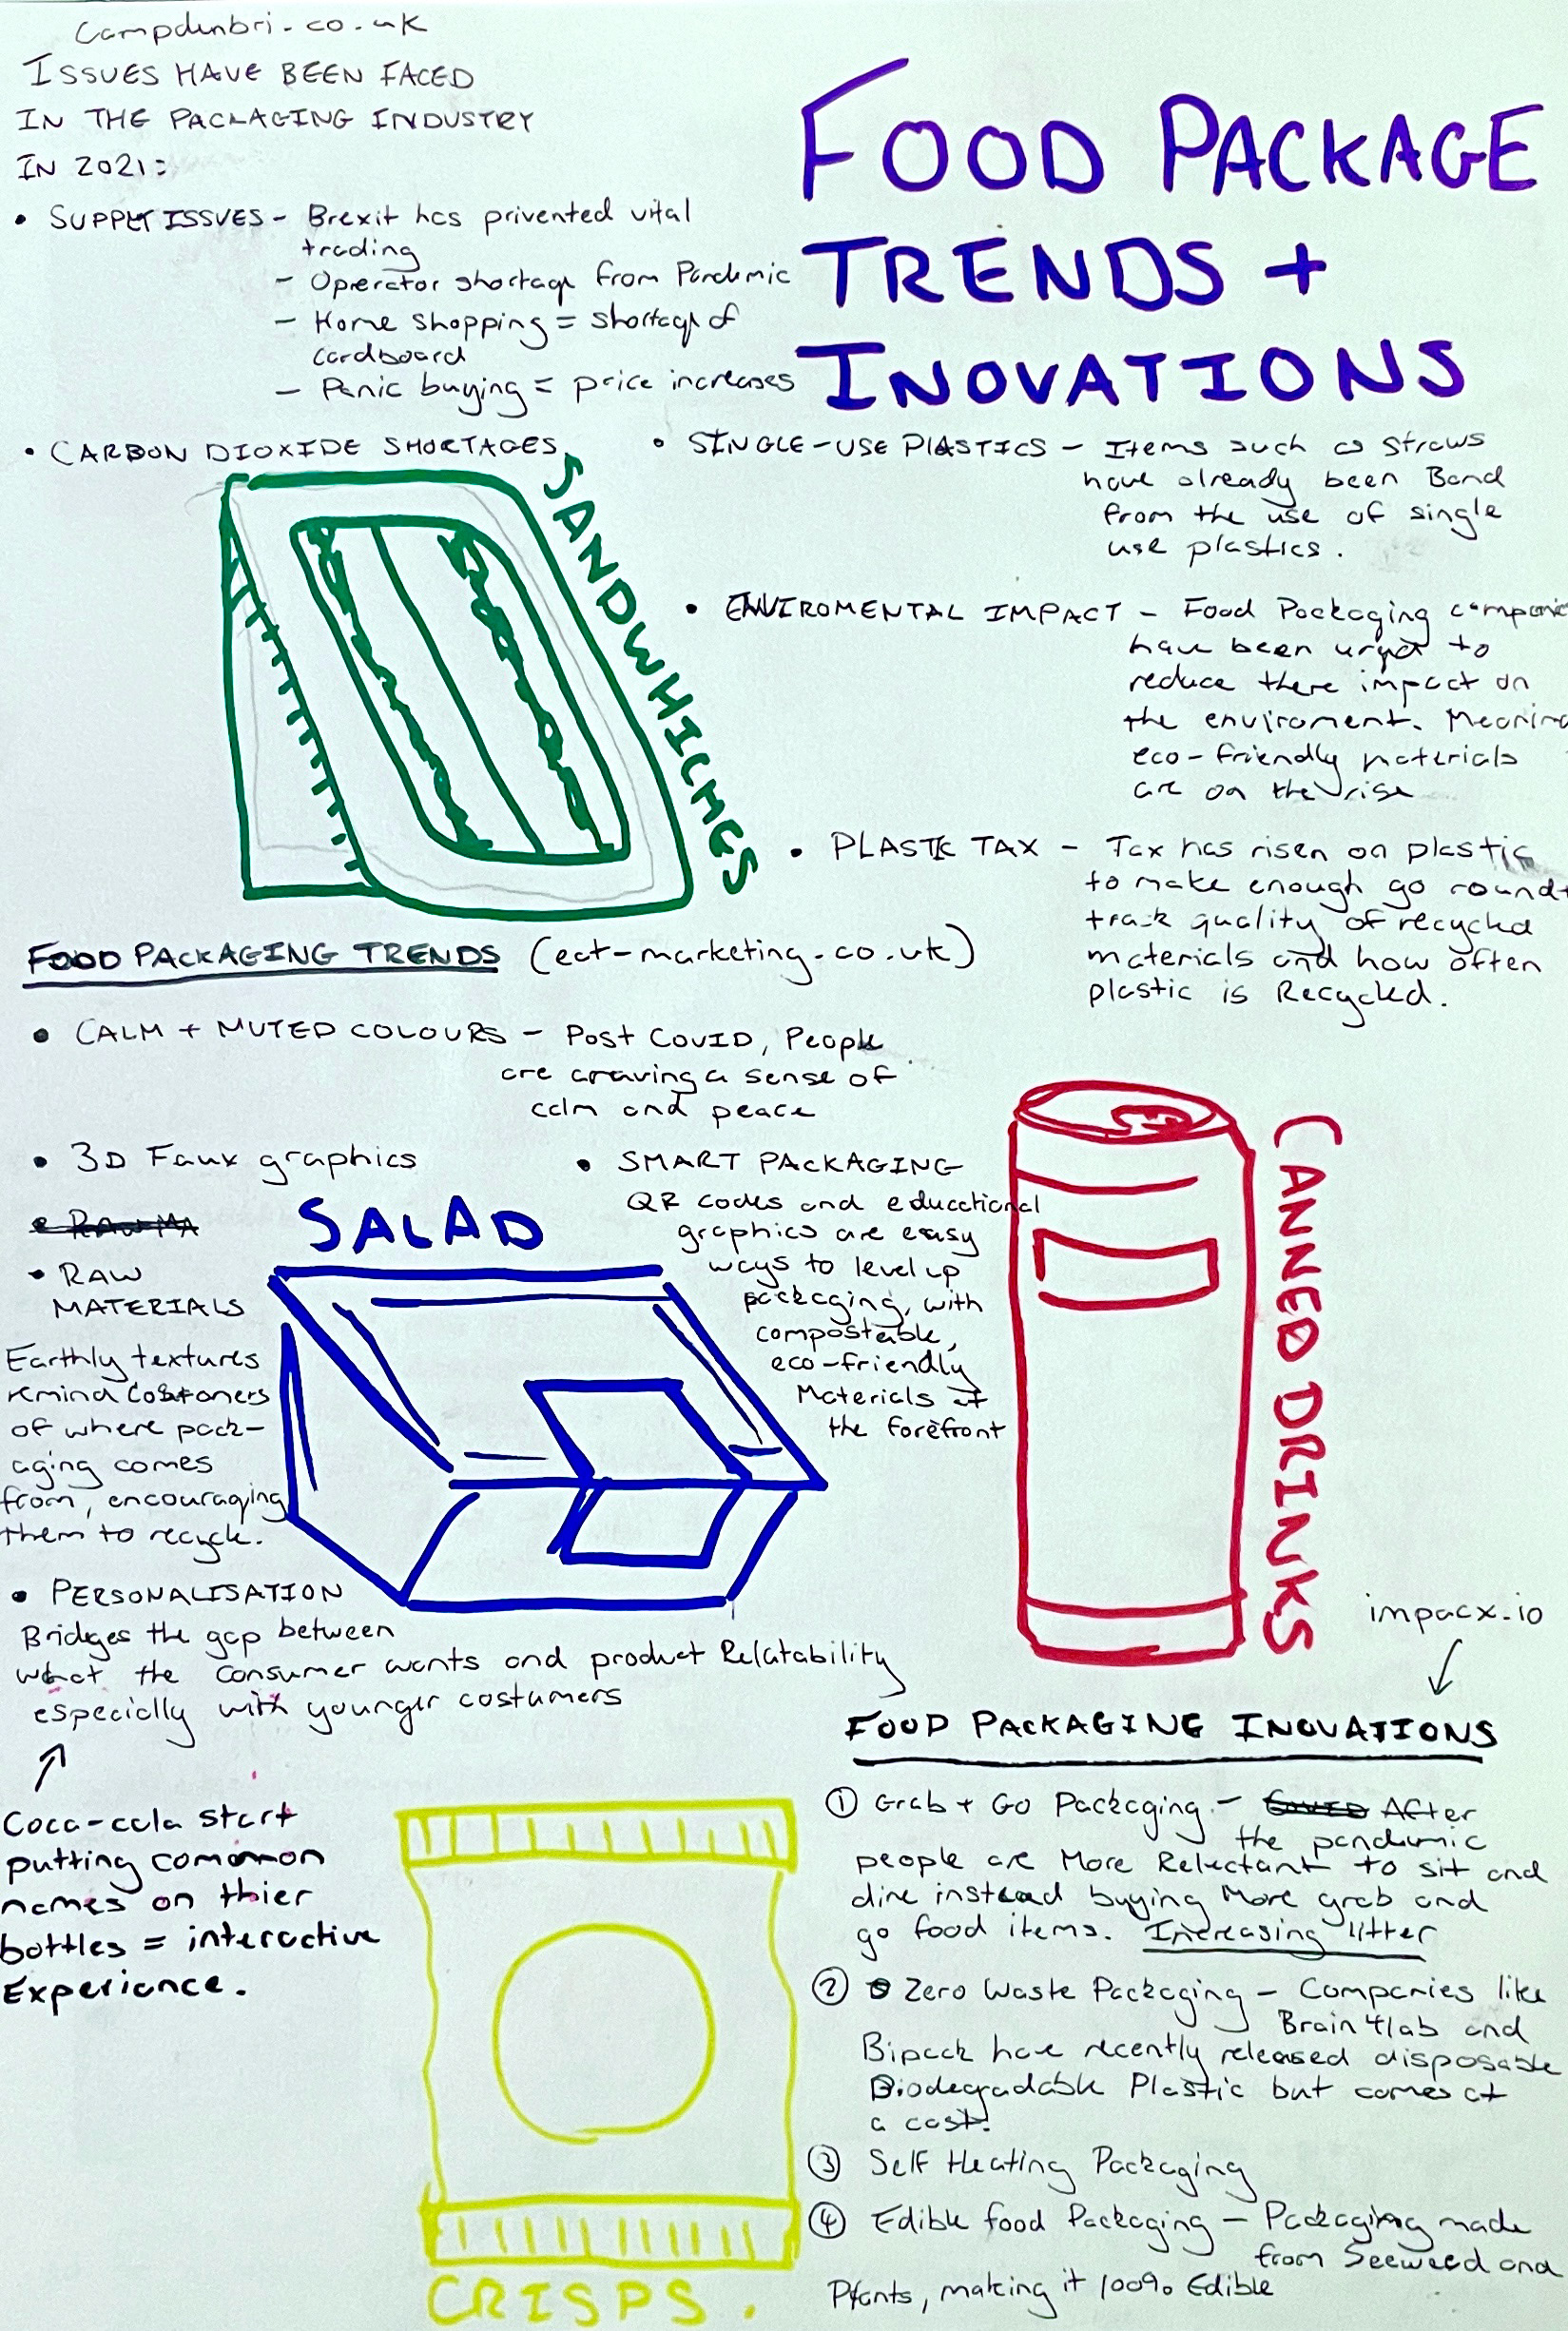 Campdenbri.co.uk
ISSUES HAVE BEEN FACED
IN THE PACKAGING INDUSTRY
IN 2021:
FOOD PACKAGE
TRENDS +
INOVATIONS
• SUPPLY ISSUES - Brexit has privented vital
trading
- Operator shortage from Pandemic
- Home shopping = shortage of
cardboard
- Panic buying = price increases
• CARBON DIOXIDE SHORTAGES
SANDWHICHES
• SINGLE-USE PLASTICS - Items such as straws
have already been Band
from the use of single
use plastics.
• ENVIROMENTAL IMPACT - Food Packaging companie
have been urged to
reduce there impact on
the enviroment. Meaning
eco-friendly materials
are on the rise
• PLASTIC TAX - Tax has risen on plastic
to make enough go round +
track quality of recycled
materials and how often
plastic is Recycled.
FOOD PACKAGING TRENDS (ect-marketing.co.uk)
• CALM + MUTED COLOURS - Post COVID, People
are craving a sense of
calm and peace
• 3D Faux graphics
• RAW MA
• RAW
MATERIALS
Earthly textures
remind Costomers
of where pack-
aging comes
from, encouraging
them to recycle.
SALAD
• SMART PACKAGING
QR codes and educational
graphics are easy
ways to level up
packaging, with
compostable,
eco-friendly
Materials at
the forefront
CANNED DRINKS
• PERSONALISATION
Bridges the gap between
what the consumer wants and product Relatability
especially with younger costumers
Coca-cola start
putting common
names on thier
bottles = interactive
Experiance.
CRISPS.
impacx.io
FOOD PACKAGING INOVATIONS
① Grab + Go Packaging - COVID After
the pandemic
people are More Reluctant to sit and
dine instead buying More grab and
go food items. Increasing litter
② Zero Waste Packaging - Companies like
Brain4lab and
Bipack have recently released disposable
Biodegradable Plastic but comes at
a cost.
③ Self Heating Packaging
④ Edible food Packaging - Packaging made
from Seeweed and
Plants, making it 100% Edible